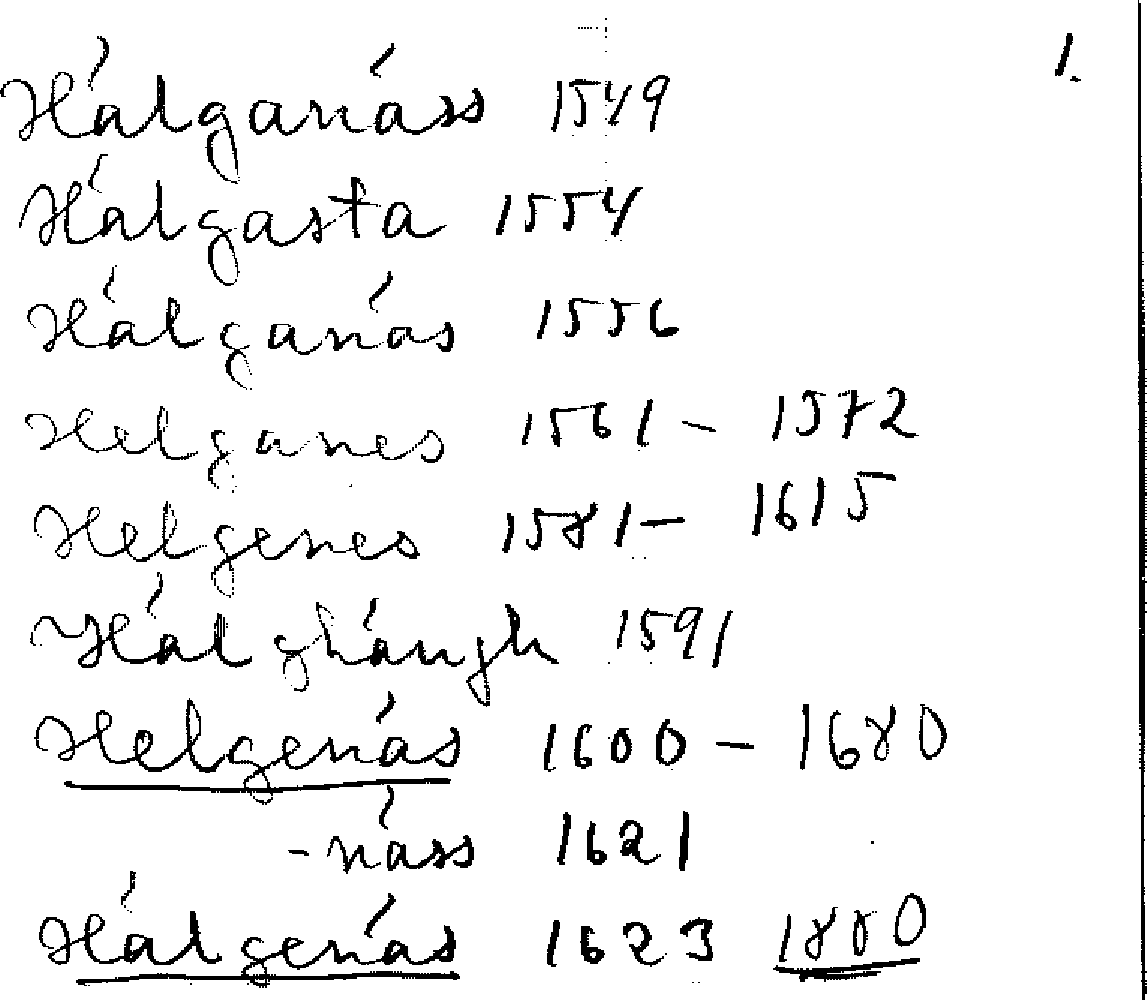 1.
Hálganáss 1549
Hálgasta 1554
Hálganás 1556
Helganes 1561 – 1572
Helgenes 1581 – 1615
Hálghángh 1591
Helgenás 1600 – 1680
-náss 1621
Hálgenás 1623 1880